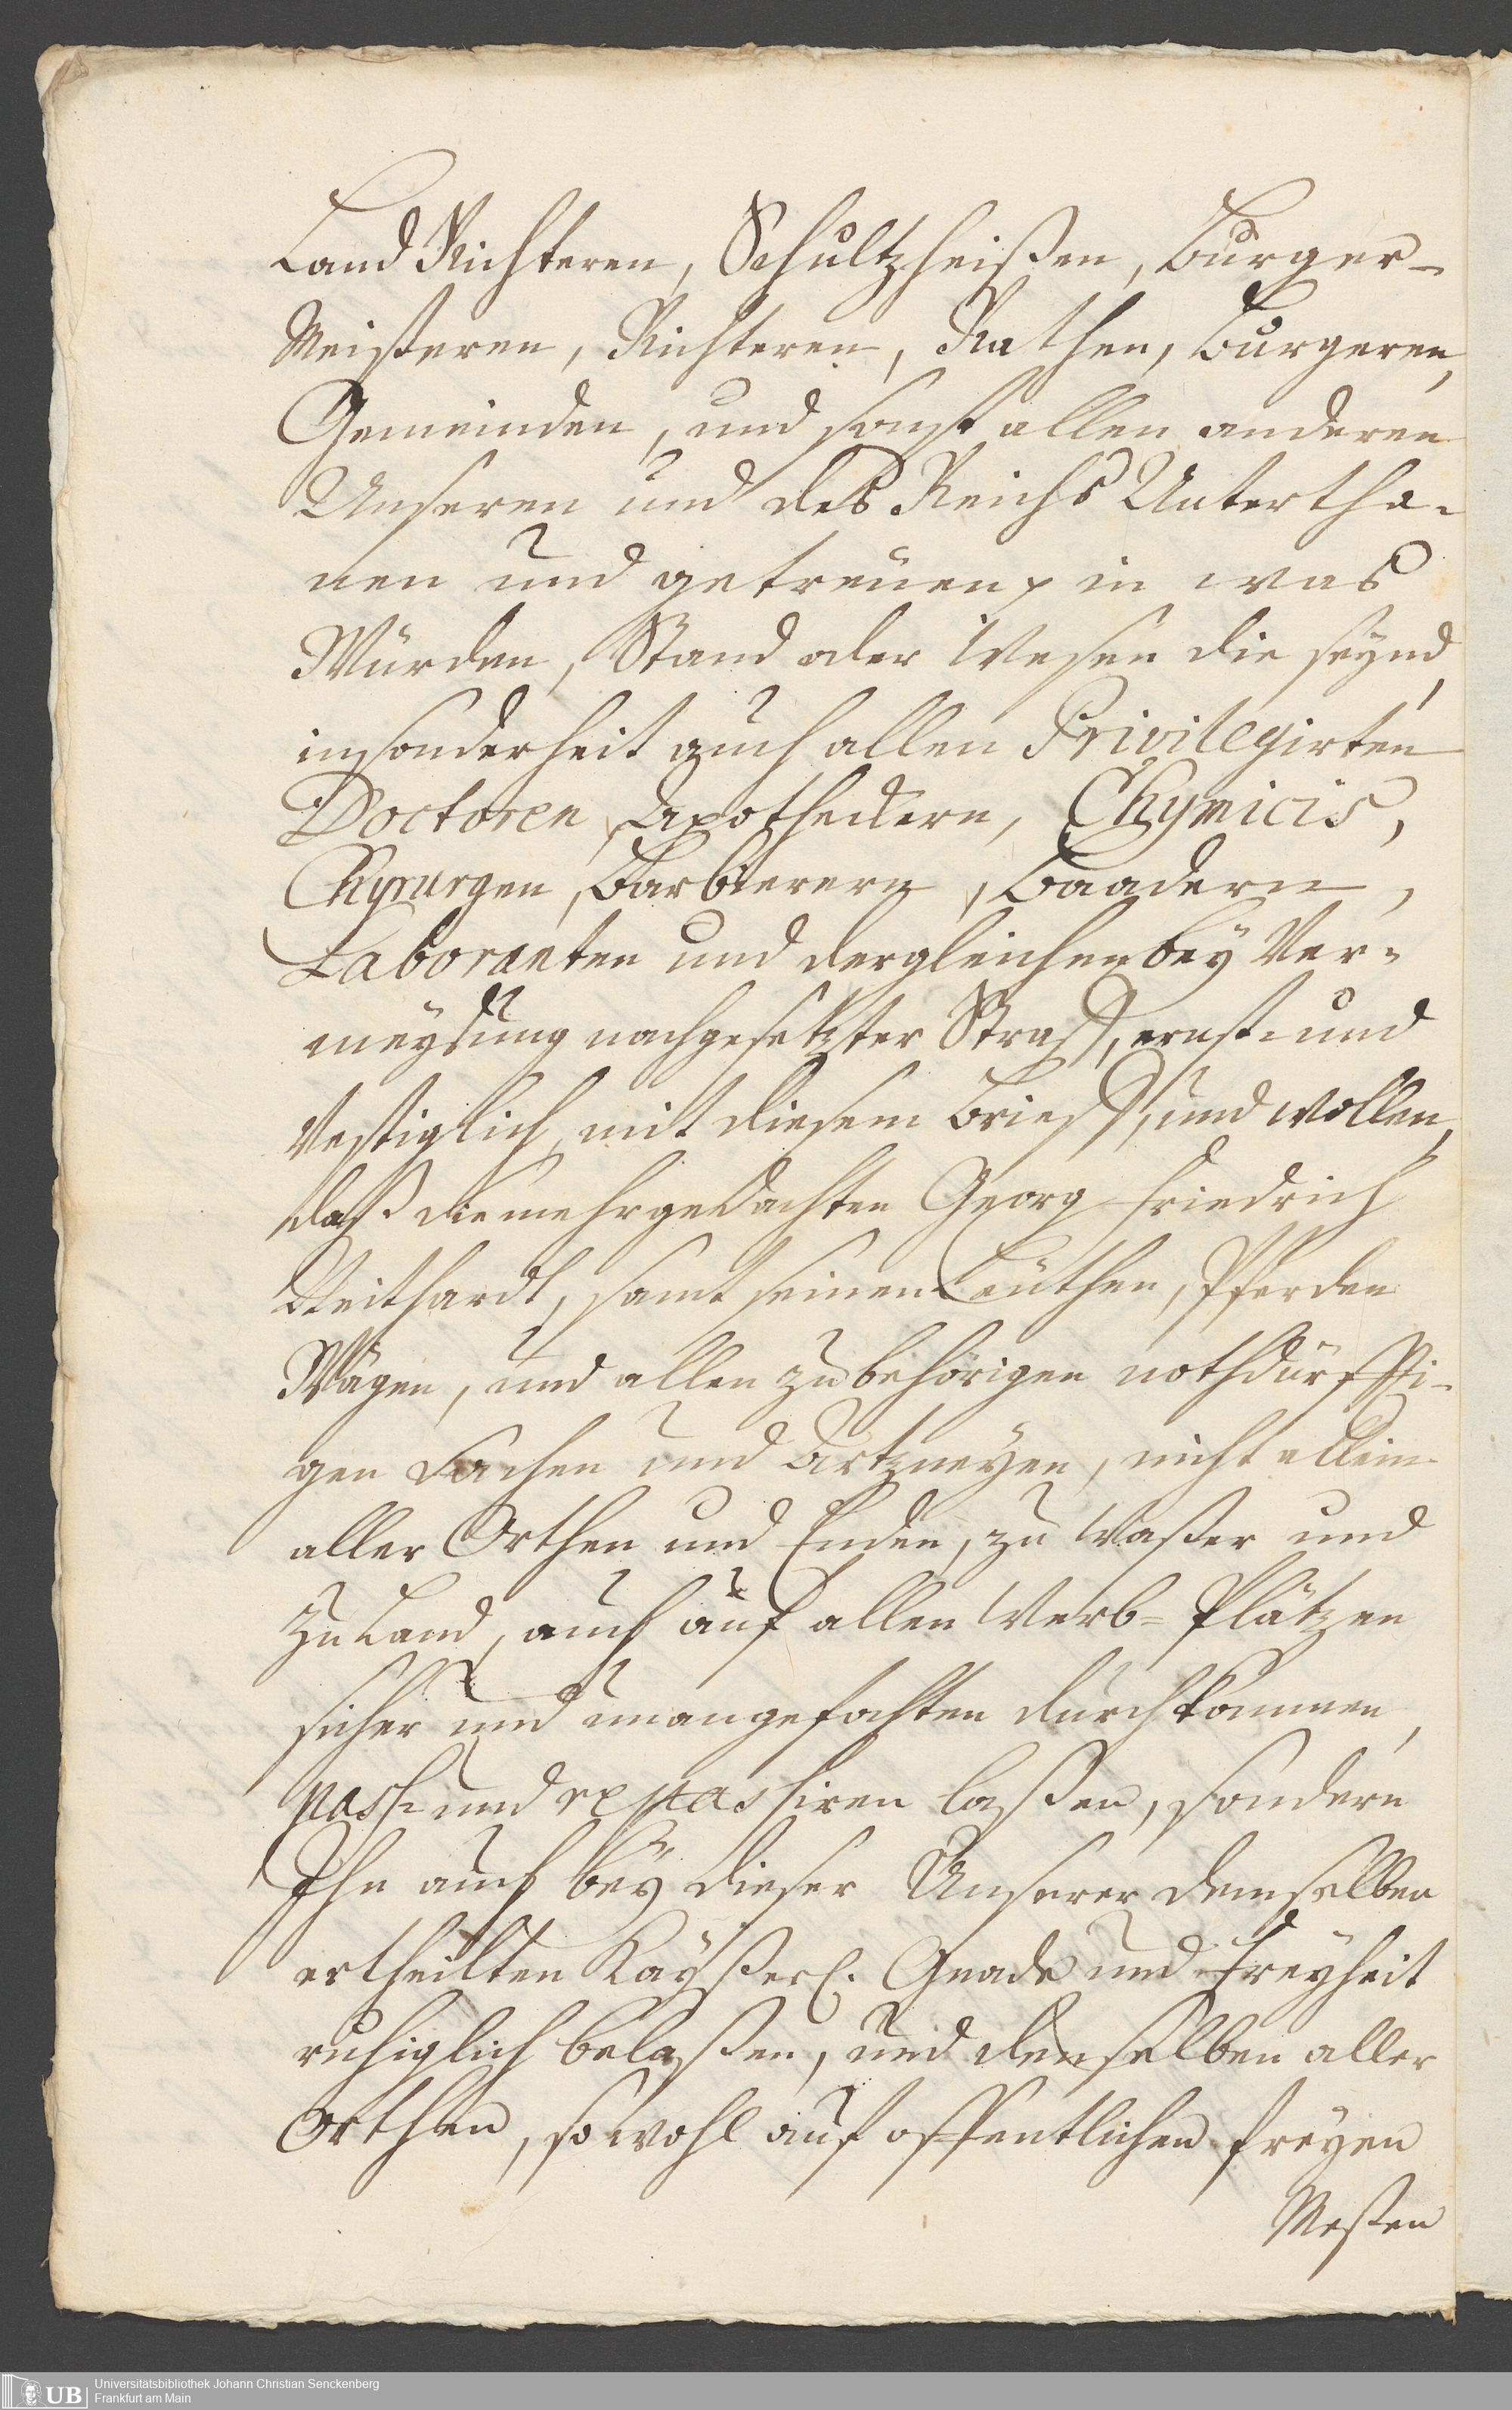 Land Richteren, Schultzheißen, Burger-
Meisteren, Richteren, Rathen, Burgeren,
Gemeinden, und sonst allen anderen
Unseren und des Reichs Untertha-
nen und getreuen, in was
Würden, Stand oder Wesen die seynd,
insonderheit auch allen Privilegirten
Doctoren, Apotheckern, Chymicis,
Chyrurgen, Barbierern, Baadern,
Laboranten und dergleichen bey Ver-
meydung nachgesetzter Straff, ernst- und
Vestiglich mit diesem Brieff, und wollen,
daß die mehrgedachten Georg Friedrich
Neithardt, samt seinen Leuthen, Pferden
Wägen, und allen zubehörigen nothdürffti-
gen Sachen und Artzneyen, nicht allein
aller Orthen und Enden, zu Waßer und
zu Land, auch auf allen Werb-Plätzen
sicher und unangefochten durchkommen,
pass- und repassiren laßen, sondern
Ihn auch bey dieser Unserer demselben
ertheilten Kayßerl. Gnade und Freyheit
ruhiglich belaßen, und denselben aller
Orthen, sowohl auf offentlichen freyen
Meßen
UB
Universitätsbibliothek Johann Christian Senckenberg
Frankfurt am Main